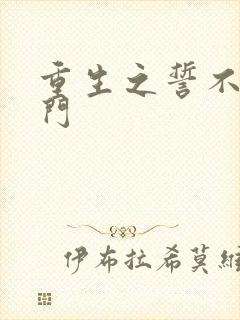 重生之誓不
門
伊布拉希莫維